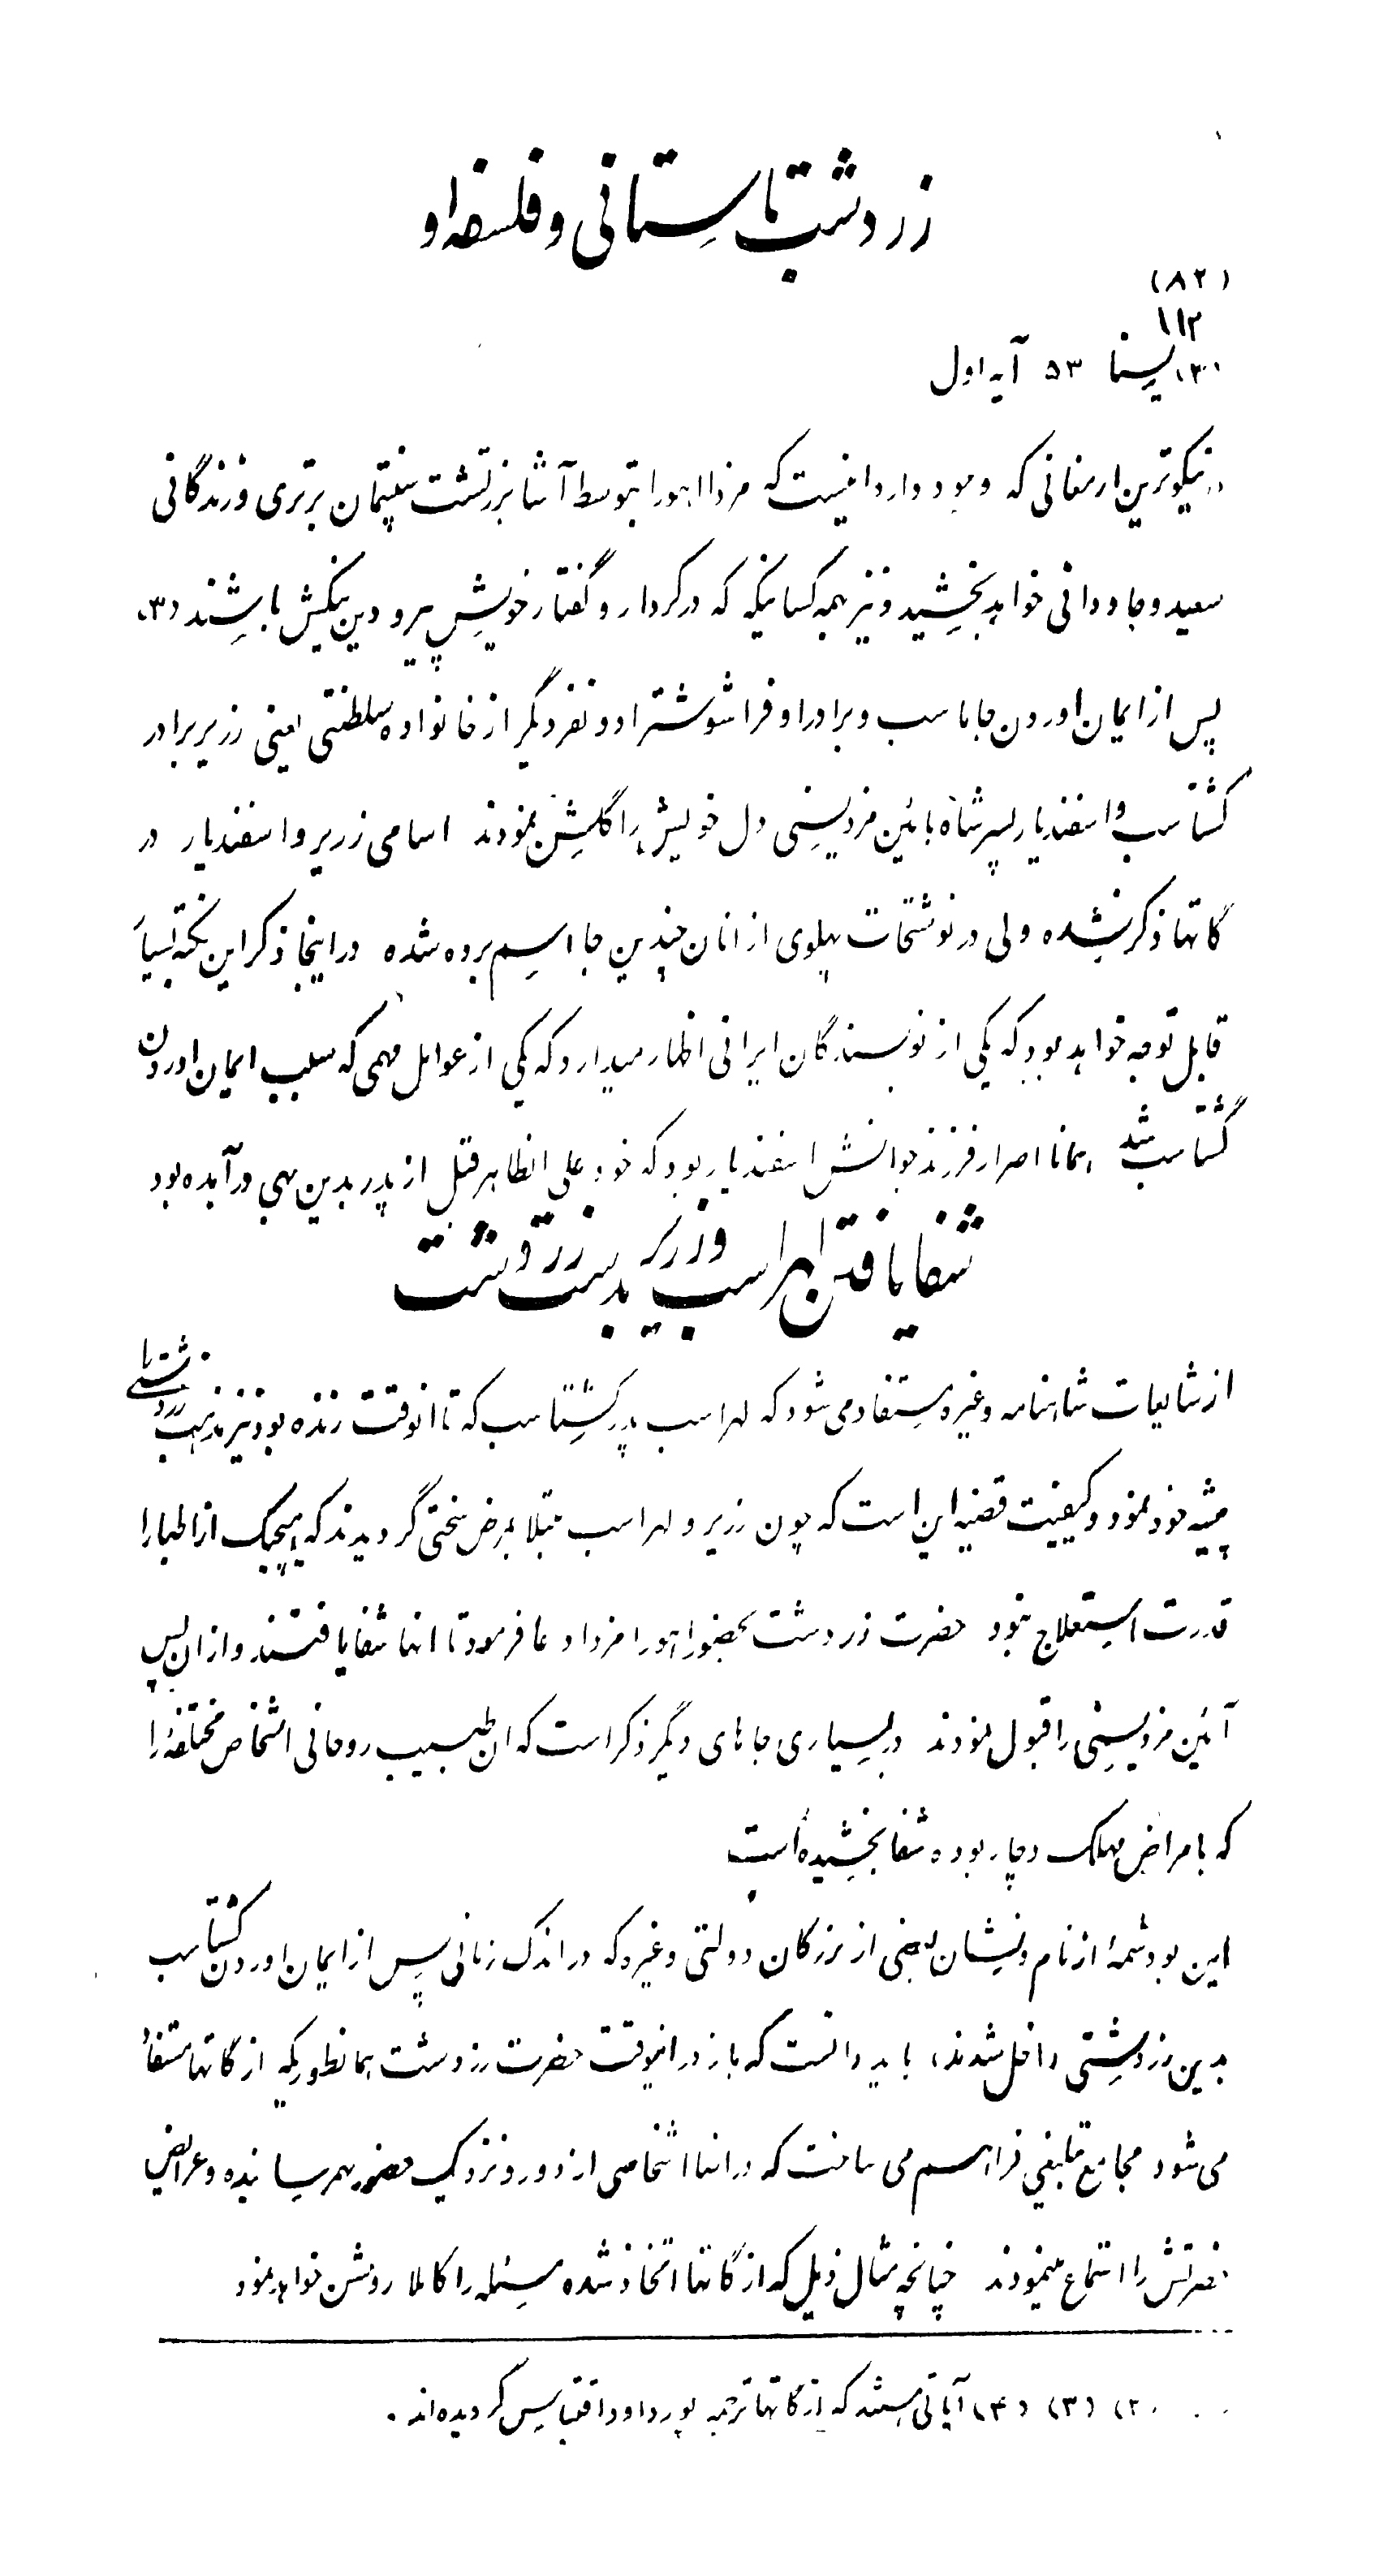 زردشت باستانی و فلسفه او
(۸۲)
۱۱۲
(۳) یسنا ۵۳ آیه اول
«نیکوترین ارمغانی که وجود دارد اینست که مزدا اهورا بتوسط آشا بزرتشت سپتیمان برتری و زندگانی
سعید و جاودانی خواهد بخشید و نیز بهمه کسانیکه که در کردار و گفتار خویش پیرو دین نیکش باشند (۳)
پس از ایمان اوردن جاماسب و برادر او فراشوشترا دو نفر دیگر از خانواده سلطنتی یعنی زریر برادر
گشتاسب و اسفندیار پسر شاه بائین مزدیسنی دل خویش را گلشن نمودند اسامی زریر و اسفندیار در
گاتها ذکر نشده ولی در نوشتجات پهلوی از انان چندین جا اسم برده شده در اینجا ذکر این نکته بسیار
قابل توجه خواهد بود که یکی از نویسندگان ایرانی اظهار میدارد که یکی از عوامل مهمی که سبب ایمان اوردن
گشتاسب شد همانا اصرار فرزند جوانش اسفندیار بود که خود علی الظاهر قبل از پدر بدین بهی درآمده بود
شفا یافتن لهراسب و زریر بدست زردشت
از شایعات شاهنامه و غیره مستفاد می شود که لهراسب پدر گشتاسب که تا انوقت زنده بود نیز مذهب زردشتی را
پیشه خود نمود و کیفیت قضیه این است که چون زریر و لهراسب مبتلا بمرض سختی گردیدند که هیچیک از اطبا را
قدرت استعلاج نبود حضرت زردشت بحضور اهورامزدا دعا فرمود تا انها شفا یافتند و از ان پس
آئین مزدیسنی را قبول نمودند در بسیاری جاهای دیگر ذکر است که ان طبیب روحانی اشخاص مختلفه را
که بامراض مهلک دچار بوده شفا بخشیده است
این بود شمهٔ از نام و نشان بعضی از بزرگان دولتی و غیره که در اندک زمانی پس از ایمان اوردن گشتاسب
بدین زردشتی داخل شدند، باید دانست که باز در اینوقت حضرت زردشت همانطوریکه از گاتها مستفاد
می شود مجامع تبلیغی فراهم می ساخت که در انها اشخاصی از دور و نزدیک حضور بهم رسانیده و عرایض
حضرتش را استماع مینمودند چنانچه مثال ذیل که از گاتها اتخاذ شده مسئله را کاملا روشن خواهد نمود
(۲) (۳) (۴) آیاتی هستند که از گاتها ترجمه پور داود اقتباس گردیده اند .